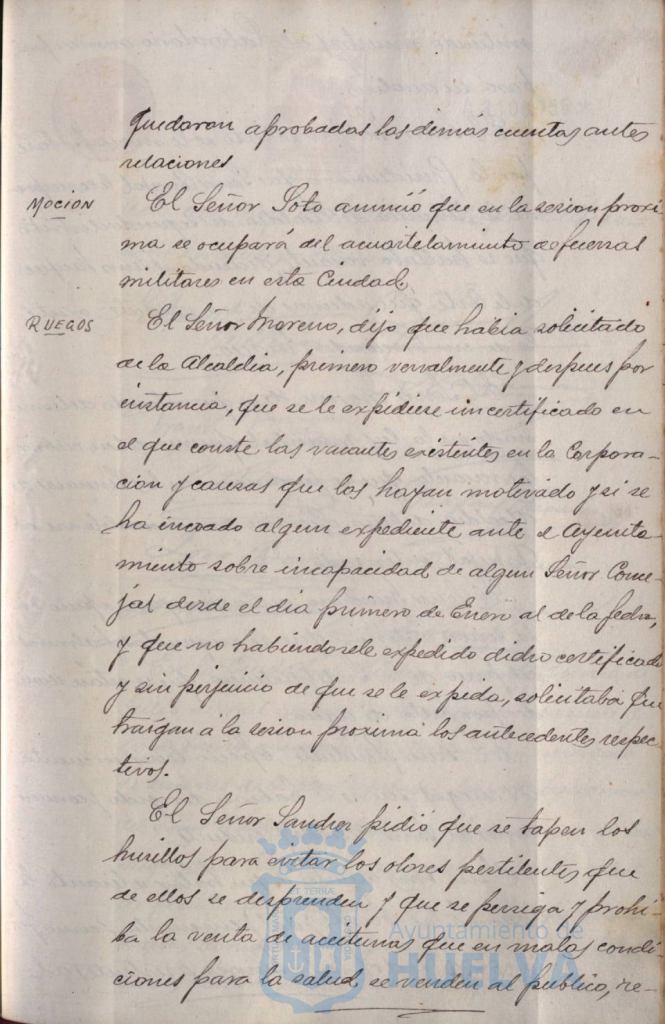 quedaron aprobadas las demás cuentas antes
relaciones
MOCION
El Señor Soto anunció que en la sesion proxi
ma se ocupará del acuartelamiento de fuerzas
militares en esta Ciudad,
RUEGOS
El Señor Moreno, dijo que habia solicitado
de la Alcaldia, primero vervalmente y despues por
instancia, que se le expidiese un certificado en
el que conste las vacantes existentes en la Corpora-
cion y causas que las hayan motivado y si se
ha incoado algun expediente ante el Ayunta-
miento sobre incapacidad de algun Señor Conce-
jal desde el dia primero de Enero al de la fecha,
y que no habiendosele expedido dicho certificado
y sin perjuicio de que se le expida, solicitaba que
traigan á la sesion proxima los antecedentes respec
tivos.
El Señor Sanchez pidió que se tapen los
husillos para evitar los olores pestilentes que
de ellos se desprenden y que se persiga y prohi
ba la venta de aceitunas que en malas condi-
ciones para la salud se venden al publico, re-
Ayuntamiento de
HUELVA